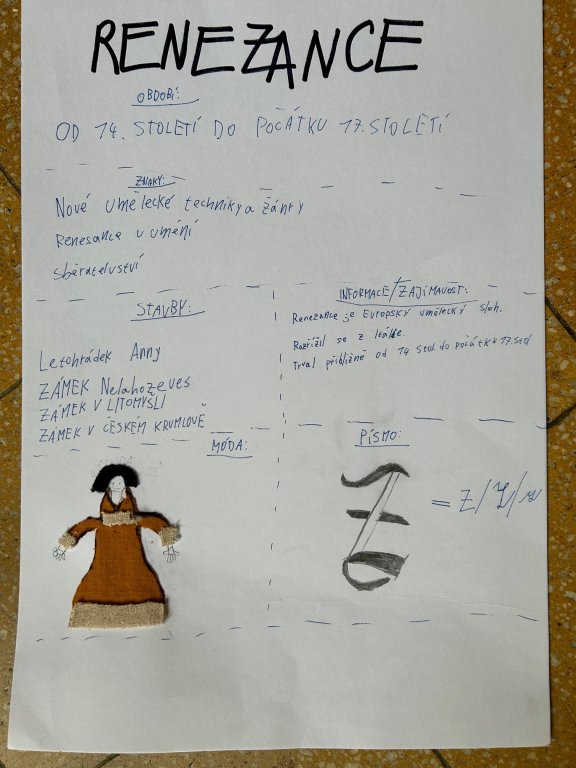 RENEZANCE
OBDOBÍ:
OD 14. STOLETÍ DO POČÁTKU 17. STOLETÍ
ZNAKY:
Nové umělecké techniky a žánry
Renesance v umění
sběratelství
STAVBY:
Letohrádek Anny
ZÁMEK Nelahozeves
ZÁMEK V LITOMYŠLI
ZÁMEK V ČESKÉM KRUMLOVĚ
INFORMACE/ZAJÍMAVOST:
Renezance je Evropský umělecký sloh.
se z Itálie.
Trval přibližně od 14 stol do počátku 17. stol
MÓDA:
PÍSMO:
Z = Z/Z/z